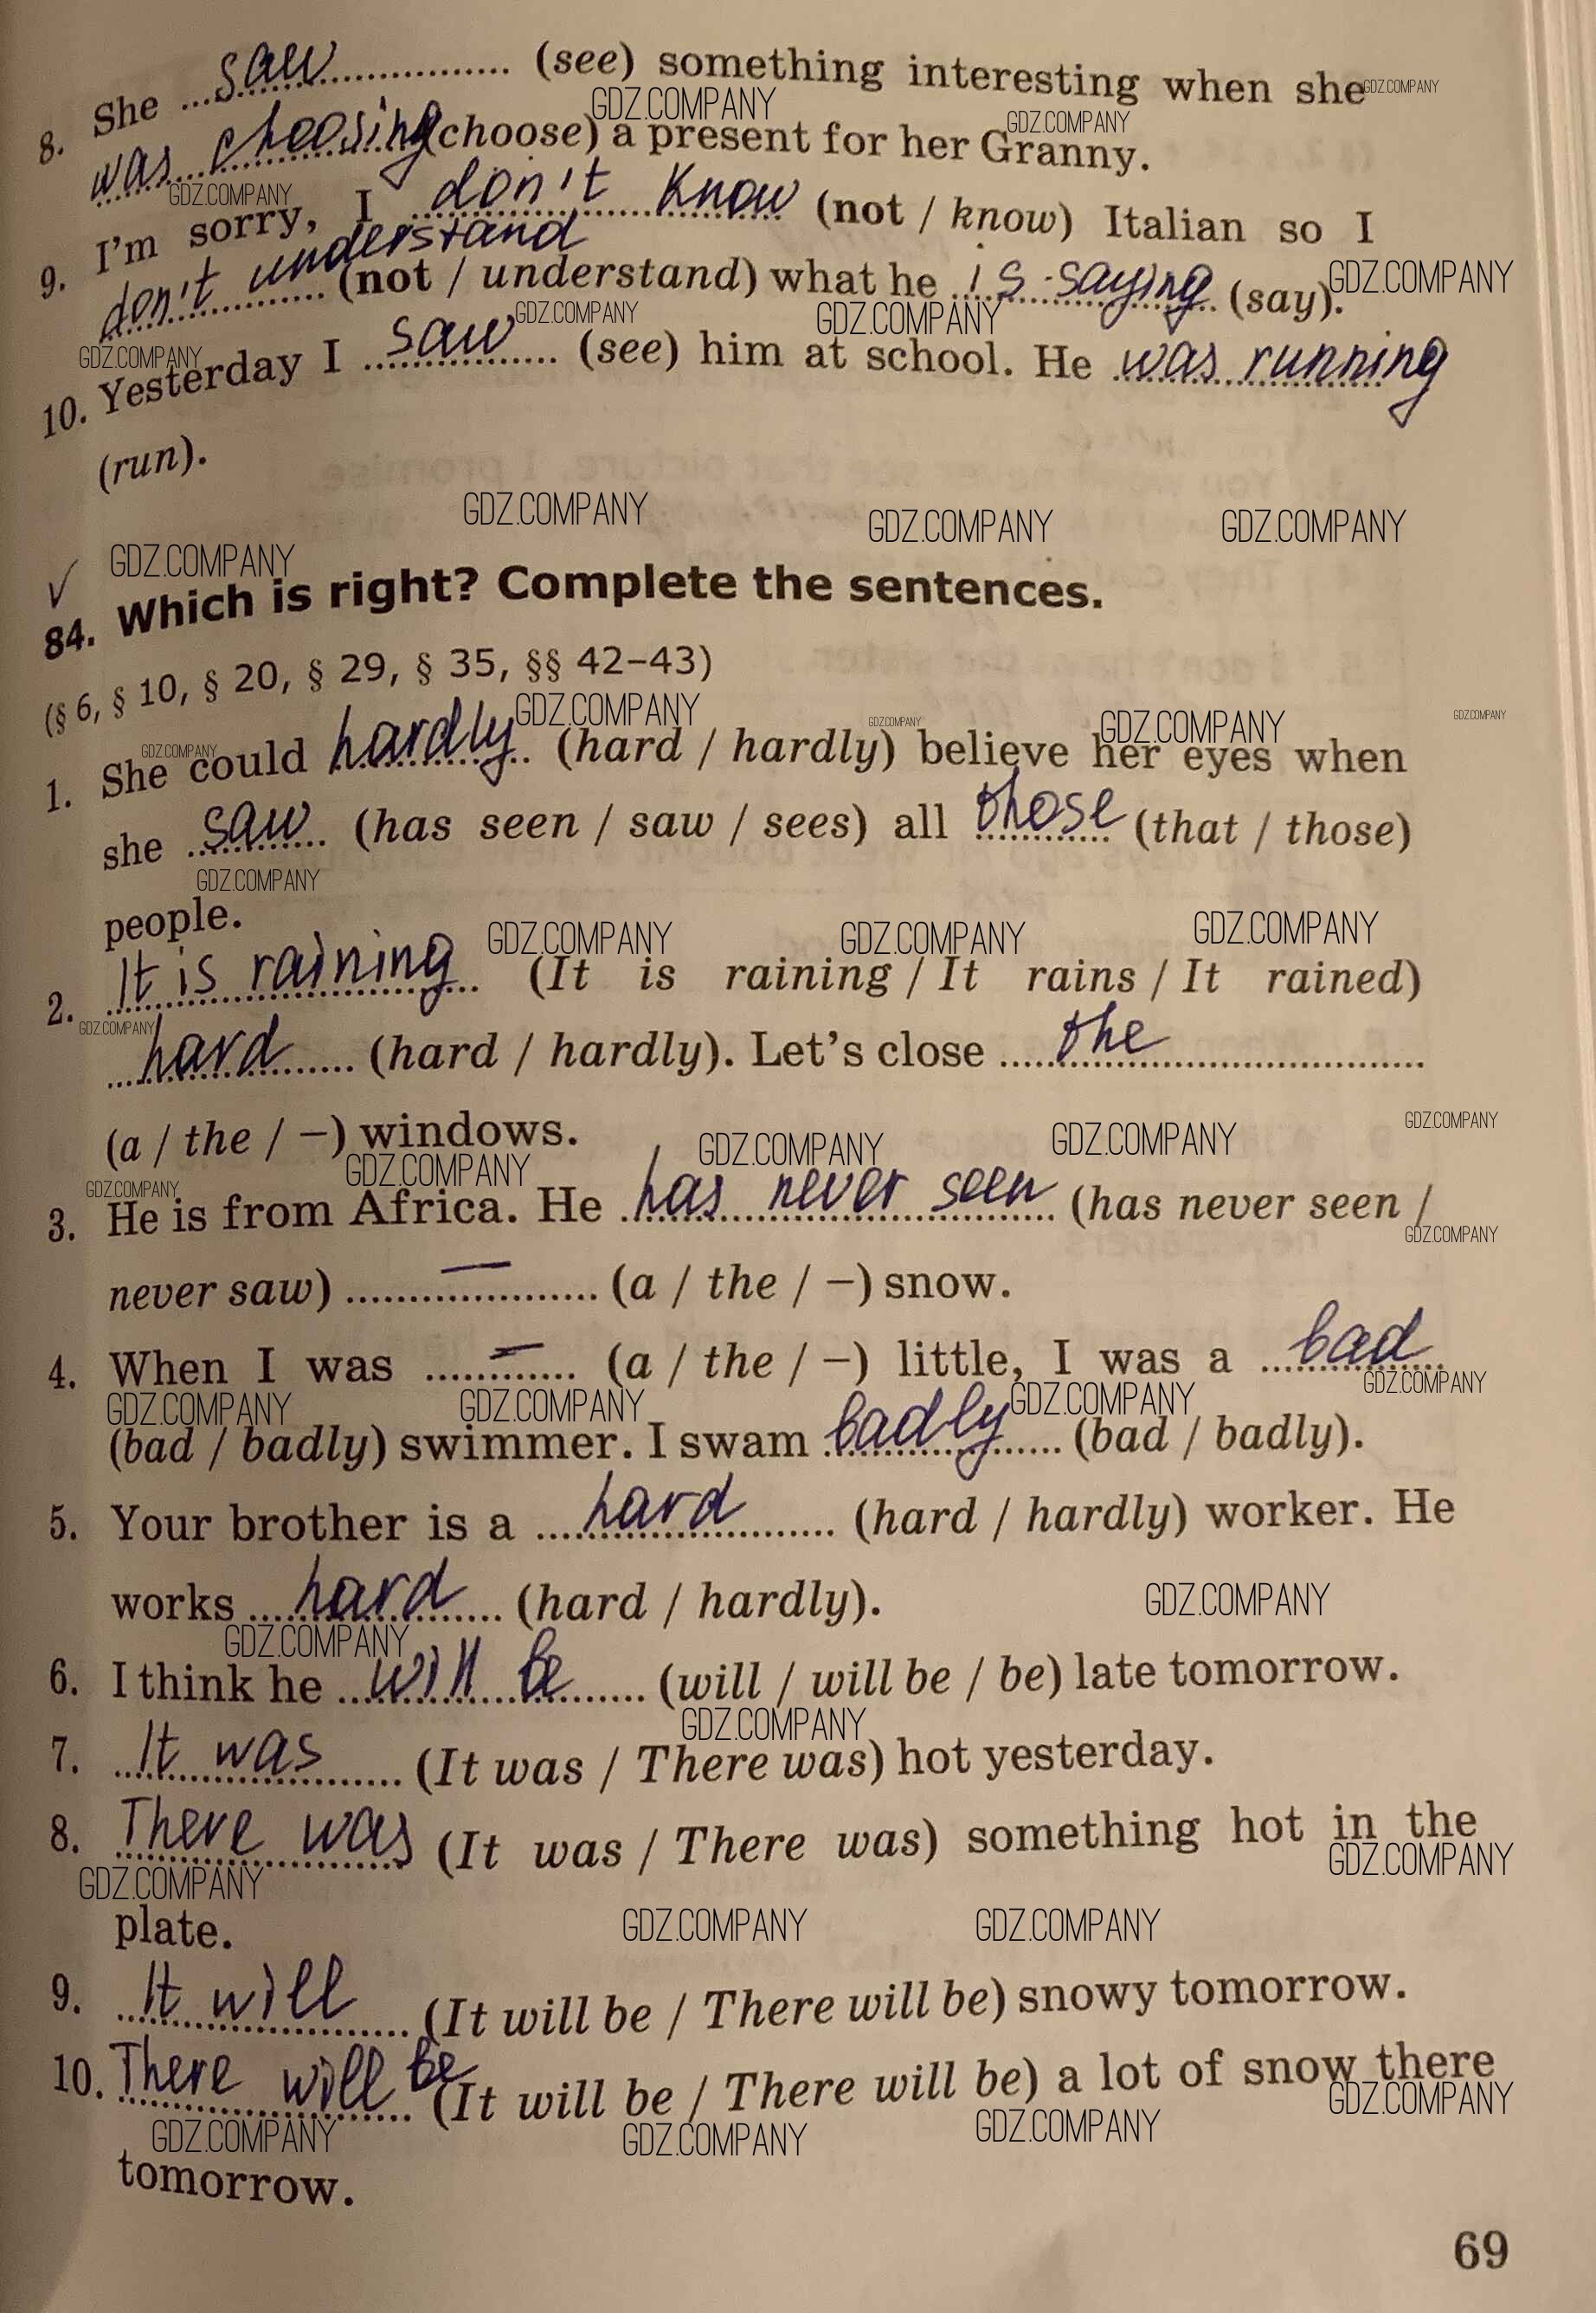 8. She saw (see) something interesting when she
was choosing (choose) a present for her Granny.
9. I'm sorry, I don't know (not / know) Italian so I
don't understand (not / understand) what he is saying (say).
10. Yesterday I saw (see) him at school. He was running
(run).
84. Which is right? Complete the sentences.
(§ 6, § 10, § 20, § 29, § 35, §§ 42–43)
1. She could hardly (hard / hardly) believe her eyes when
she saw (has seen / saw / sees) all those (that / those)
people.
2. It is raining (It is raining / It rains / It rained)
hard (hard / hardly). Let's close the
(a / the / –) windows.
3. He is from Africa. He has never seen (has never seen /
never saw) – (a / the / –) snow.
4. When I was – (a / the / –) little, I was a bad
(bad / badly) swimmer. I swam badly (bad / badly).
5. Your brother is a hard (hard / hardly) worker. He
works hard (hard / hardly).
6. I think he will be (will / will be / be) late tomorrow.
7. It was (It was / There was) hot yesterday.
8. There was (It was / There was) something hot in the
plate.
9. It will (It will be / There will be) snowy tomorrow.
10. There will be (It will be / There will be) a lot of snow there
tomorrow.
69
GDZ.COMPANY